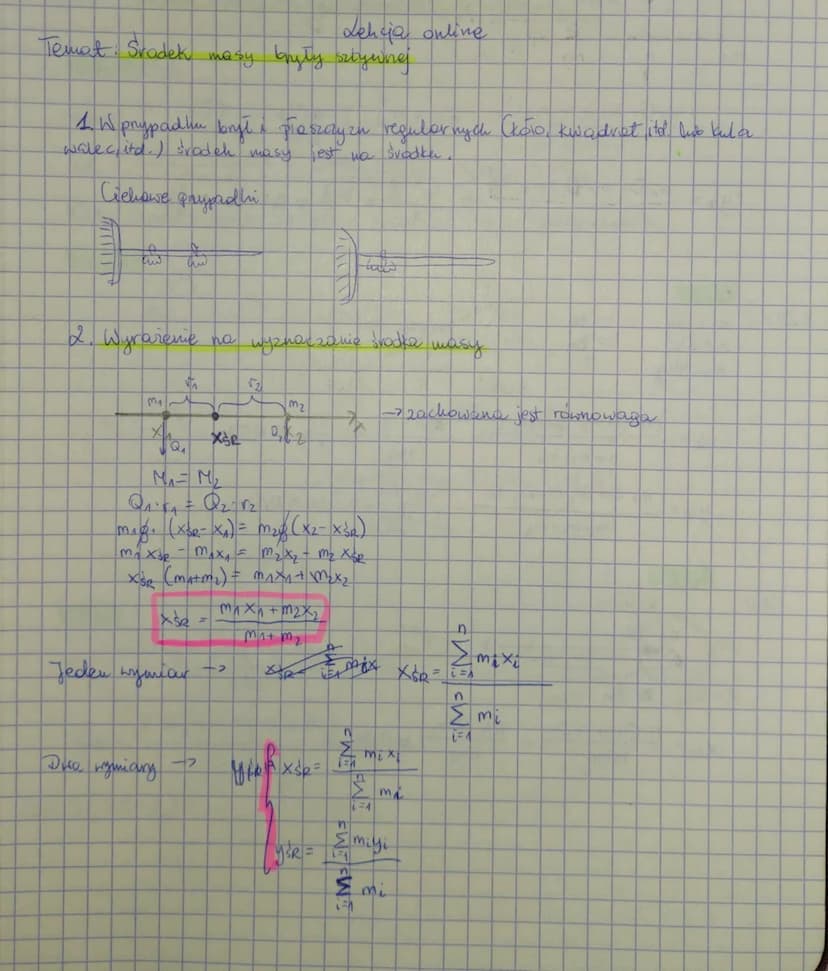 Lekcja online
Temat: Środek masy bryły sztywnej
1. W przypadku brył i płaszczyzn regularnych (koło, kwadrat, itd. lub kula
walec, itd.) środek masy jest na środku.
Ciekawe przypadki
2. Wyrażenie na wyznaczanie środka masy
r₁ r₂
m₁ m₂ → zachowana jest równowaga
x₁ Q₁ xŚR Q₂ x₂ x
M₁ = M₂
Q₁·r₁ = Q₂·r₂
m₁g·(xŚR - x₁) = m₂g(x₂ - xŚR)
m₁xŚR - m₁x₁ = m₂x₂ - m₂xŚR
xŚR (m₁+m₂) = m₁x₁ + m₂x₂
xŚR = (m₁x₁ + m₂x₂) / (m₁+m₂)
Jeden wymiar → xŚR = \frac{\sum_{i=1}^{n} m_i x_i}{\sum_{i=1}^{n} m_i}
Dwa wymiary → xŚR = \frac{\sum_{i=1}^{n} m_i x_i}{\sum_{i=1}^{n} m_i}
yŚR = \frac{\sum_{i=1}^{n} m_i y_i}{\sum_{i=1}^{n} m_i}